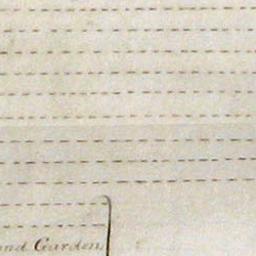 and Garden